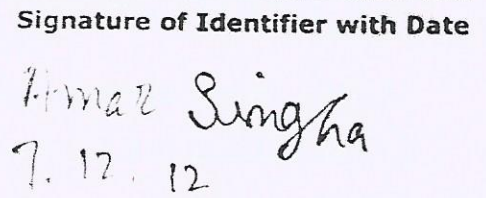 Signature of Identifier with Date
Amar Singha
7. 12. 12